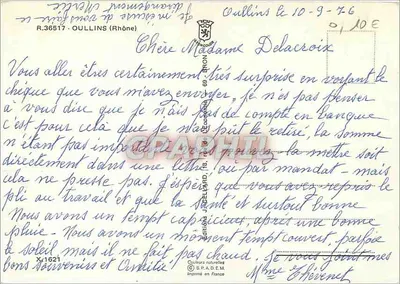 Oullins le 10-9-76
0,10E
Je m'excuse de vous faire ce
dérangement Merci
R.36517 - OULLINS (Rhône)
Chère Madame Delacroix
Vous allez êtres certainement très surprise en voyant le
chèque que vous m'avez envoyer, je n'es pas penser
à vous dire que je n'ais pas de compte en banque
c'est pour cela que je n'ais put le retiré, la somme
n étant pas important la mettre soit
directement dans une lettre, ou par mandat - mais
cela ne presse pas. J'espère que vous avez repris le
pli au travail et que la santé et surtout bonne
Nous avons un tempt capricieux, après une bonne
pluie - Nous avons un moment tempt couvert, parfois
le soleil, mais il ne fait pas chaud. Je vous joint mes
bons souvenirs et Amitié
Mme Thévenet
X/1621
Couleurs naturelles
© S.P.A.D.E.M.
Imprimé en France